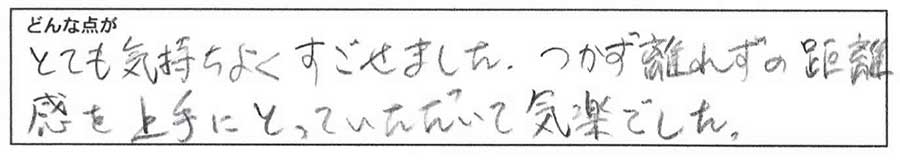 どんな点が
とても気持ちよくすごせました。つかず離れずの距離
感を上手にとっていただいて気楽でした。